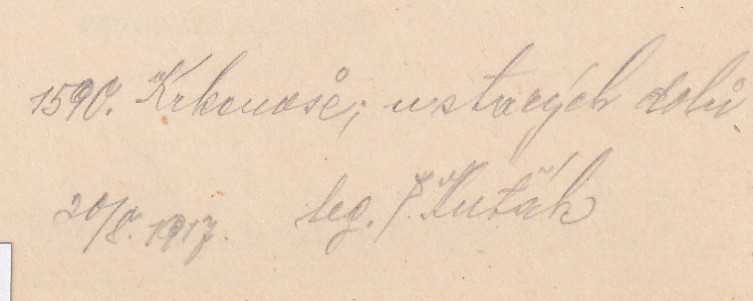 1590. Krkonoše; u starých dolů.
20/8. 1917. leg. F. Huták